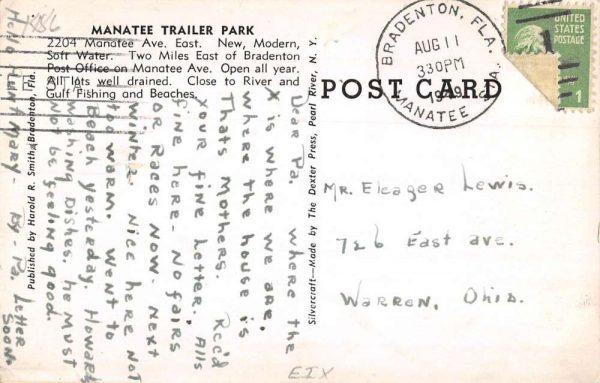 MANATEE TRAILER PARK
2204 Manatee Ave. East. New, Modern,
Soft Water. Two Miles East of Bradenton
Post Office on Manatee Ave. Open all year.
All lots well drained. Close to River and
Gulf Fishing and Beaches.
Published by Harold R. Smith, Bradenton, Fla.
Silvercraft—Made by The Dexter Press, Pearl River, N. Y.
POST CARD
BRADENTON, FLA.
AUG 11
330PM
1949
MANATEE
UNITED
STATES
POSTAGE
1
Dear Pa. where the
X is where we are.
where the house is
Thats Mothers. Rec'd
your fine letter. Alls
fine here. No fairs
or Races now. Next
winter. Nice here not
too warm. went to
Beach yesterday. Howard
washing Dishes. he must
not be feeling good
Hello Mary - By - Pa. letter
soon.
Mr. Eleager Lewis.
726 East ave.
Warren, Ohio.
EIX